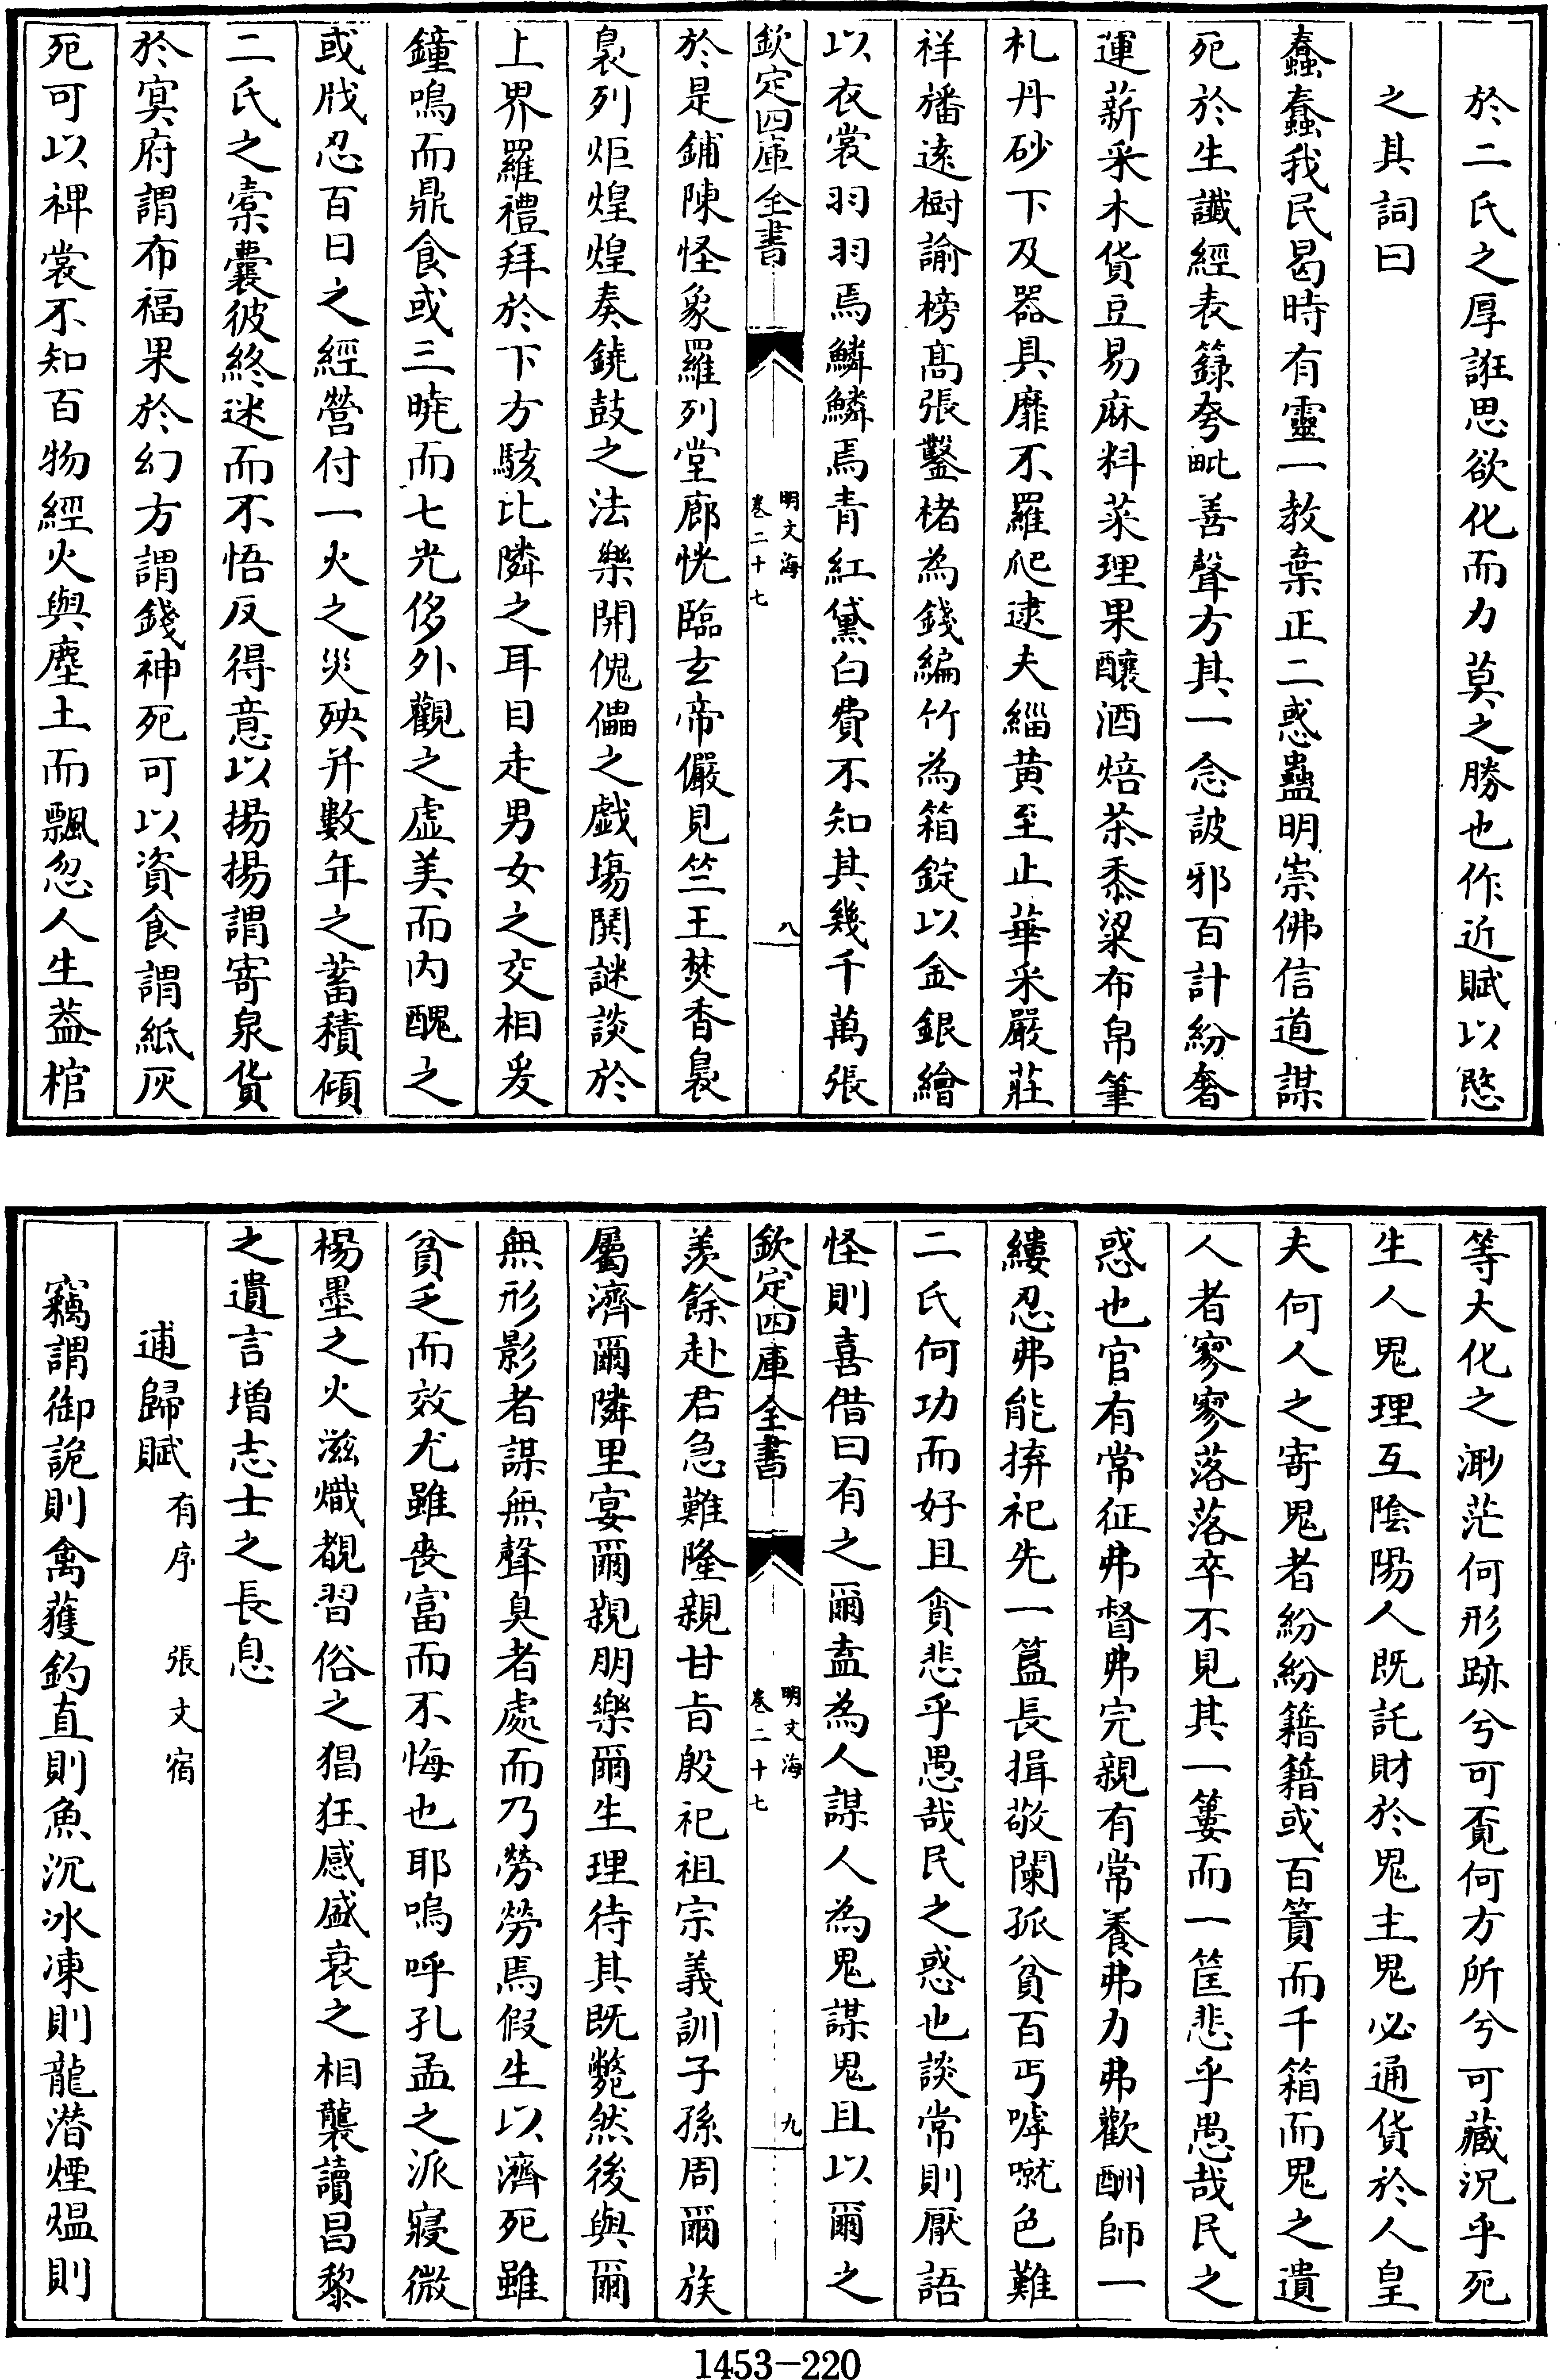 於二氏之厚誑思欲化而力莫之勝也作近賦以愍
之其詞曰
蠢蠢我民曷時有靈一教棄正二惑蠱明崇佛信道謀
死於生讖經表籙夸毗善聲方其一念詖邪百計紛奢
運薪采木貨豆易麻料菜理果釀酒焙茶黍粱布帛筆
札丹砂下及器具靡不羅爬逮夫緇黄至止華采嚴莊
祥旛遶樹諭榜髙張鑿楮為錢編竹為箱錠以金銀繪
以衣裳羽羽焉鱗鱗焉青紅黛白費不知其幾千萬張
欽定四庫全書
明文海
卷二十七
八
於是鋪陳怪象羅列堂廊恍臨玄帝儼見竺王焚香裊
裊列炬煌煌奏鐃鼓之法樂開傀儡之戲塲鬨謎談於
上界羅禮拜於下方駭比隣之耳目走男女之交相爰
鐘鳴而鼎食或三曉而七光侈外觀之虚美而内醜之
或戕忍百日之經營付一火之災殃并數年之蓄積傾
二氏之橐囊彼終迷而不悟反得意以揚揚謂寄泉貨
於冥府謂布福果於幻方謂錢神死可以資食謂紙灰
死可以裨裳不知百物經火與塵土而飄忽人生葢棺
等大化之渺茫何形跡兮可覔何方所兮可藏況乎死
生人鬼理互陰陽人既託財於鬼主鬼必通貨於人皇
夫何人之寄鬼者紛紛籍籍或百簣而千箱而鬼之遺
人者寥寥落落卒不見其一簍而一筐悲乎愚哉民之
惑也官有常征弗督弗完親有常養弗力弗歡酬師一
縷忍弗能捹祀先一簋長揖敬闌孤貧百丐嘑噈色難
二氏何功而好且貪悲乎愚哉民之惑也談常則厭語
怪則喜借曰有之爾盍為人謀人為鬼謀鬼且以爾之
欽定四庫全書
明文海
卷二十七
九
羡餘赴君急難隆親甘旨殷祀祖宗義訓子孫周爾族
屬濟爾隣里宴爾親朋樂爾生理待其既斃然後與爾
無形影者謀無聲臭者處而乃勞勞焉假生以濟死雖
貧乏而效尤雖喪富而不悔也耶嗚呼孔孟之派寢微
楊墨之火滋熾覩習俗之猖狂感盛衰之相襲讀昌黎
之遺言増志士之長息
逋歸賦有序 張文宿
竊謂御詭則禽獲釣直則魚沉冰凍則龍潜煙煴則
1453-220